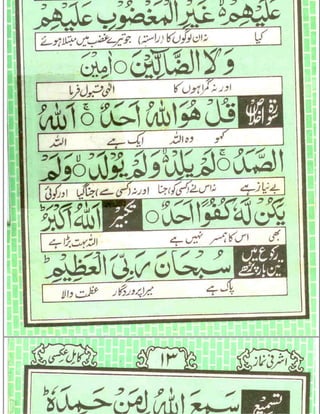 عَلَيْهِمْ ۙ غَيْرِ الْمَغْضُوْبِ عَلَيْهِمْ
کیا نہ ان لوگوں کا (راستہ) جو تیرے غضب میں مبتلا ہوئے
وَلَا الضَّآلِّيْنَ ۝ اٰمِيْن
اور نہ گمراہوں کا الٰہی قبول فرما
سورۃ اخلاص قُلْ هُوَ اللّٰهُ اَحَدٌ ۝ اَللّٰهُ
کہو وہ اللہ ایک ہے اللہ
الصَّمَدُ ۝ لَمْ يَلِدْ ۙ وَلَمْ يُوْلَدْ ۝ وَلَمْ
بے نیاز ہے نہ اس نے (کسی کو) جنا اور نہ (کسی سے) جنا گیا اور کوئی
يَكُنْ لَّهٗ كُفُوًا اَحَدٌ ۝ تکبیر اَللّٰهُ اَكْبَرُ
بھی اس کا ہمسر نہیں ہے اللہ بہت بڑا ہے
رکوع میں تین بار پڑھے سُبْحَانَ رَبِّيَ الْعَظِيْمِ
پاک ہے میرا پروردگار عظمت والا
اشرفی نماز ۱۳ کامل عکسی
تسمیع سَمِعَ اللّٰهُ لِمَنْ حَمِدَهٗ